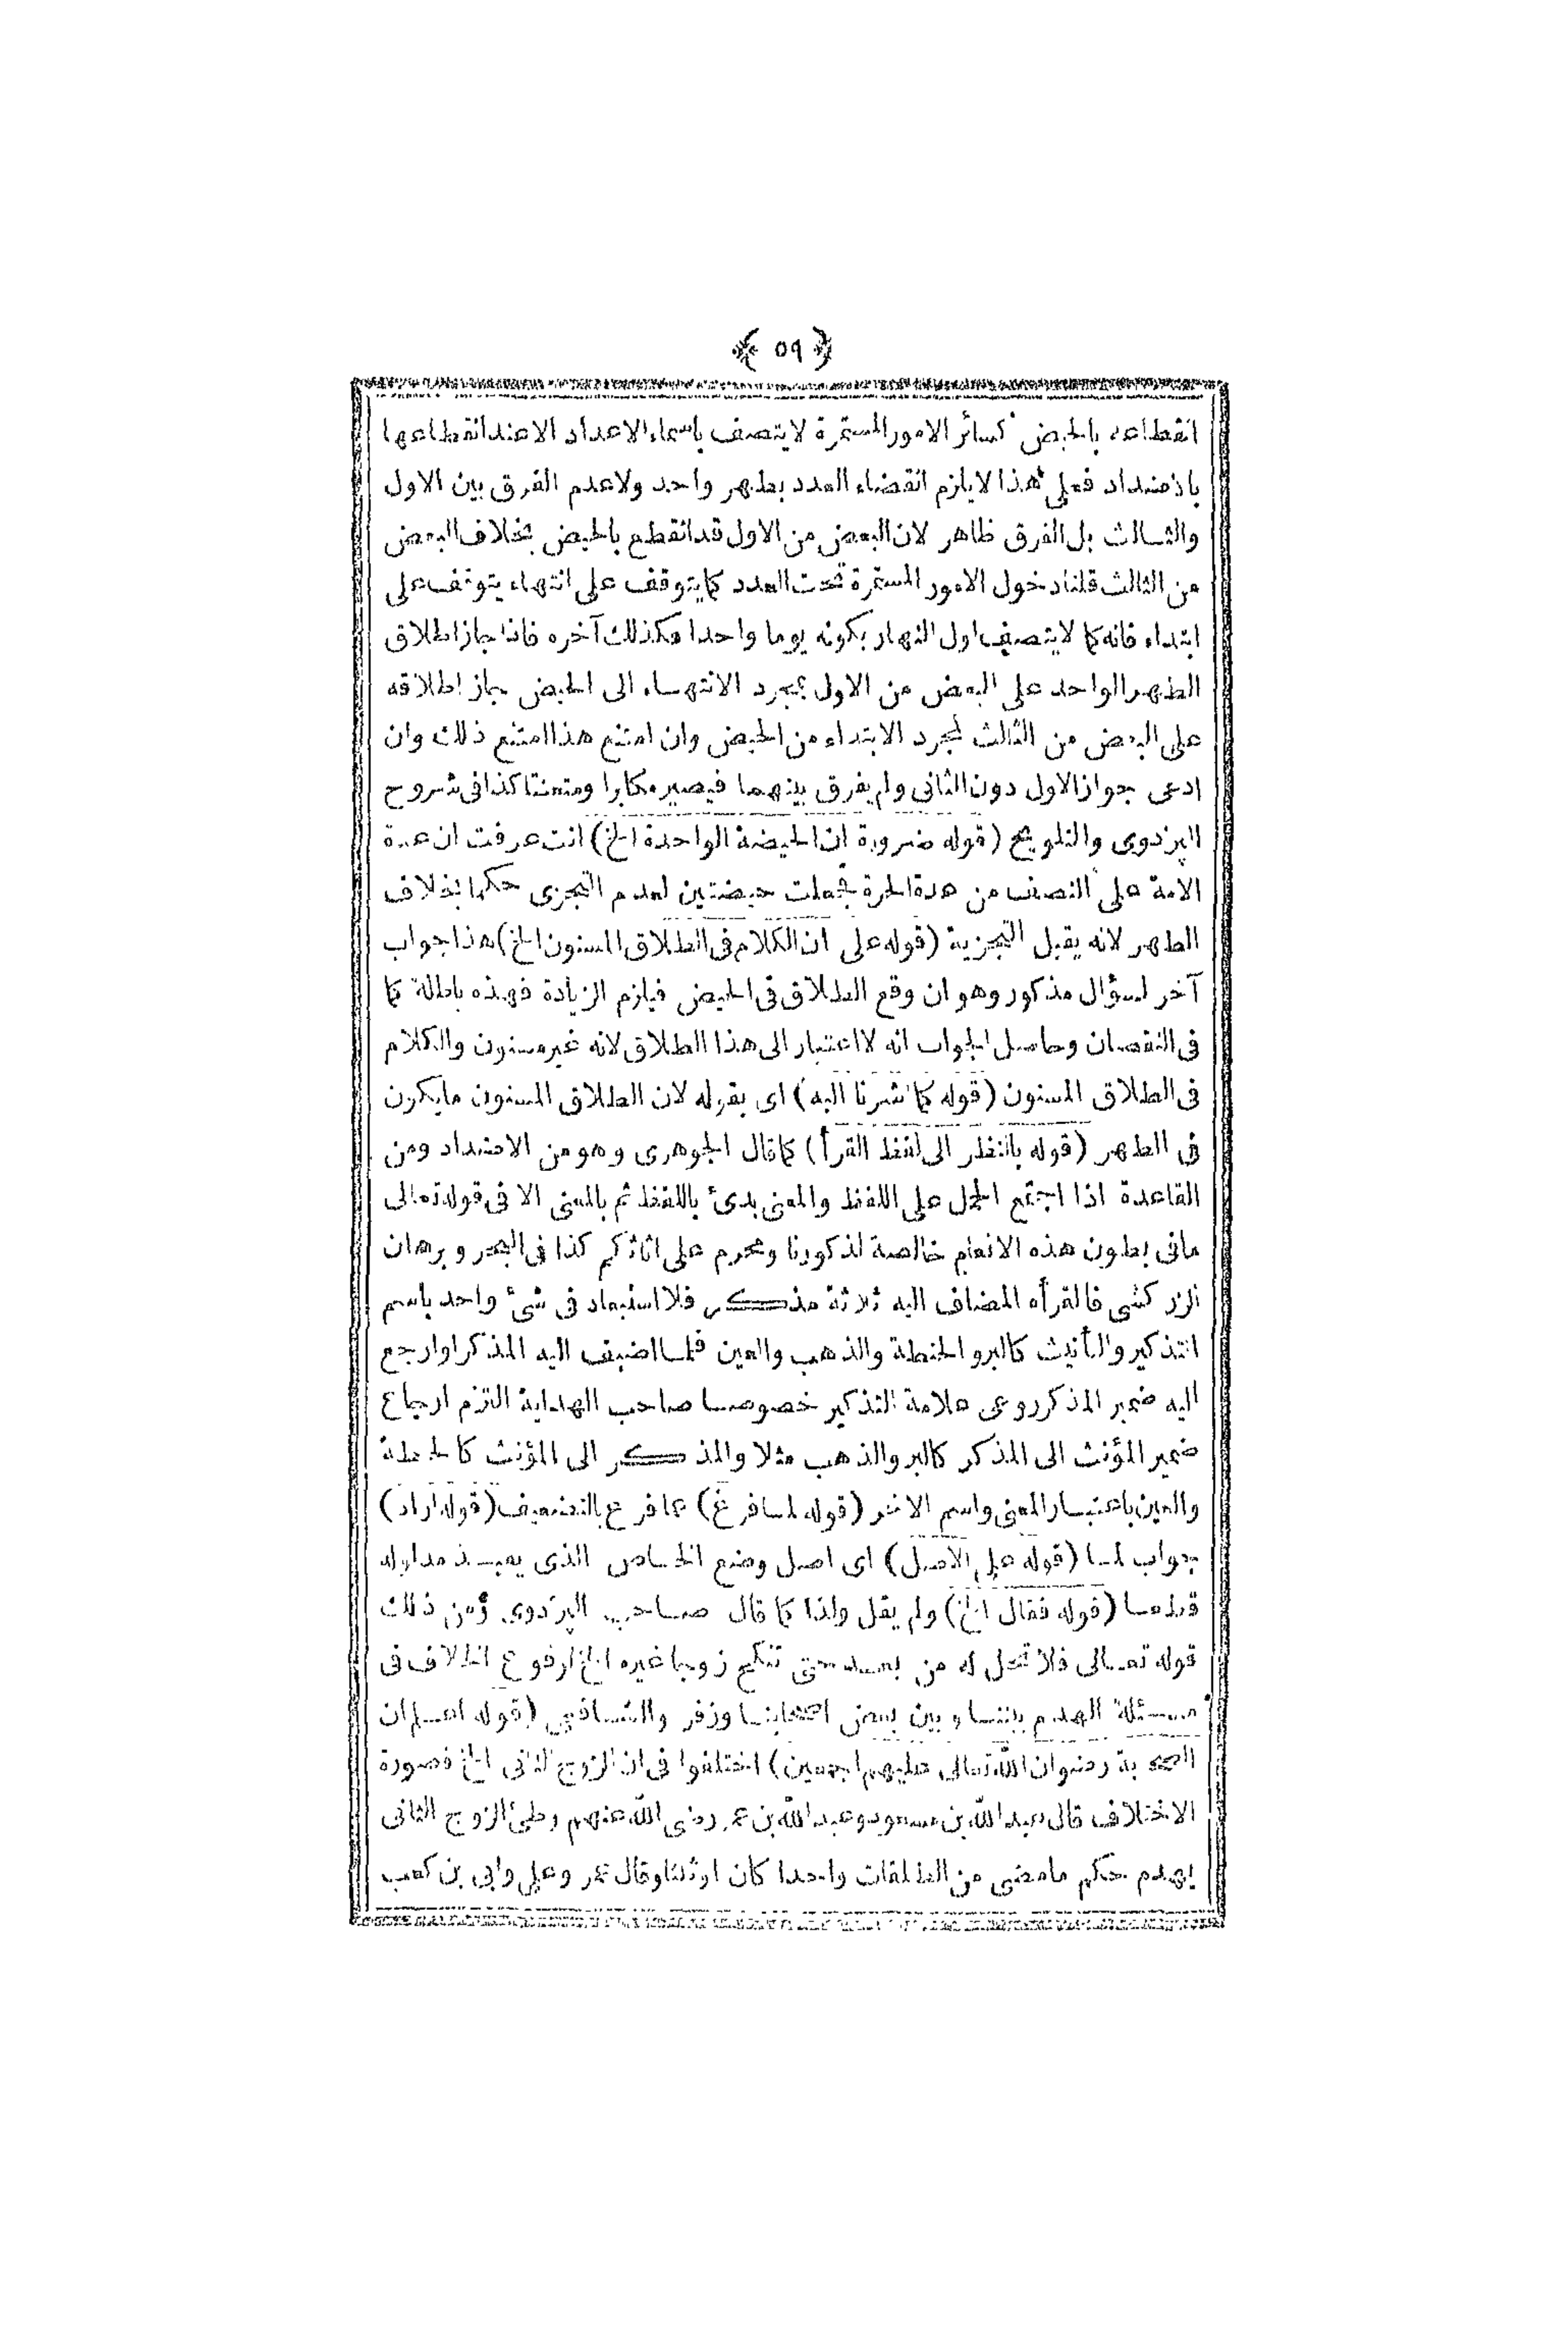 ﴿ ٥٩ ﴾
انقطاعه بالحيض كسائر الامور المستمرة لايتصف باسماء الاعداد الاعند انقطاعها
باذضداد فعلى هذا لايلزم انقضاء العدد بطهر واحد ولاعدم الفرق بين الاول
والثالث بل الفرق ظاهر لان البعض من الاول قدانقطع بالحيض بخلاف البعض
من الثالث قلنا دخول الامور المستمرة تحت العدد كما يتوقف على انتهاء يتوقف على
ابتداء فانه كما لايتصف اول النهار بكونه يوما واحدا فكذلك آخره فاذا جاز اطلاق
الطهر الواحد على البعض من الاول بمجرد الانتهاء الى الحيض جاز اطلاقه
على البعض من الثالث لمجرد الابتداء من الحيض وان امتنع هذا امتنع ذلك وان
ادعى جواز الاول دون الثانى ولم يفرق بينهما فيصير مكابرا ومتعنتا كذا فى شروح
البزدوى والتلويح (قوله ضرورة ان الحيضة الواحدة الخ) انت عرفت ان عدة
الامة على النصف من عدة الحرة فجعلت حيضتين لعدم التجزى حكما بخلاف
الطهر لانه يقبل التجزية (قوله على ان الكلام فى الطلاق المسنون الخ) هذا جواب
آخر لسؤال مذكور وهو ان وقع الطلاق فى الحيض فيلزم الزيادة فهذه باطلة كما
فى النقصان وحاصل الجواب انه لا اعتبار الى هذا الطلاق لانه غير مسنون والكلام
فى الطلاق المسنون (قوله كما اشرنا اليه) اى بقوله لان الطلاق المسنون مايكون
فى الطهر (قوله بالنظر الى لفظ القرأ) كماقال الجوهرى وهو من الاضداد ومن
القاعدة اذا اجتمع الحمل على اللفظ والمعنى بدئ باللفظ ثم بالمعنى الا فى قوله تعالى
مافى بطون هذه الانعام خالصة لذكورنا ومحرم على اناثكم كذا فى البحر وبرهان
الزركشى فالقرأه المضاف اليه ثلاثة مذكر فلا استبعاد فى شئ واحد باسم
التذكير والتأنيث كالبر والحنطة والذهب والعين فلما اضيف اليه المذكر او ارجع
اليه ضمير المذكر روعى علامة التذكير خصوصا صاحب الهداية التزم ارجاع
ضمير المؤنث الى المذكر كالبر والذهب مثلا والمذكر الى المؤنث كالحنطة
والعين باعتبار المعنى واسم الاخر (قوله لما فرغ) عما فرع بالتضعيف (قوله اراد)
جواب لما (قوله على الاصل) اى اصل وضع الخاص الذى يفيد مدلوله
قطعا (قوله فقال الخ) ولم يقل ولذا كما قال صاحب البزدوى ومن ذلك
قوله تعالى فلا تحل له من بعد حتى تنكح زوجا غيره الخ لوقوع الخلاف فى
مسئلة الهدم بيننا وبين بعض اصحابنا وزفر والشافعى (قوله اعلم ان
الصحابة رضوان الله تعالى عليهم اجمعين) اختلفوا فى ان الزوج الثانى الخ فصورة
الاختلاف قال عبد الله بن مسعود وعبد الله بن عمر رضى الله عنهم وطئ الزوج الثانى
يهدم حكم مامضى من الطلقات واحدا كان او ثلثا وقال عمر وعلى وابى بن كعب